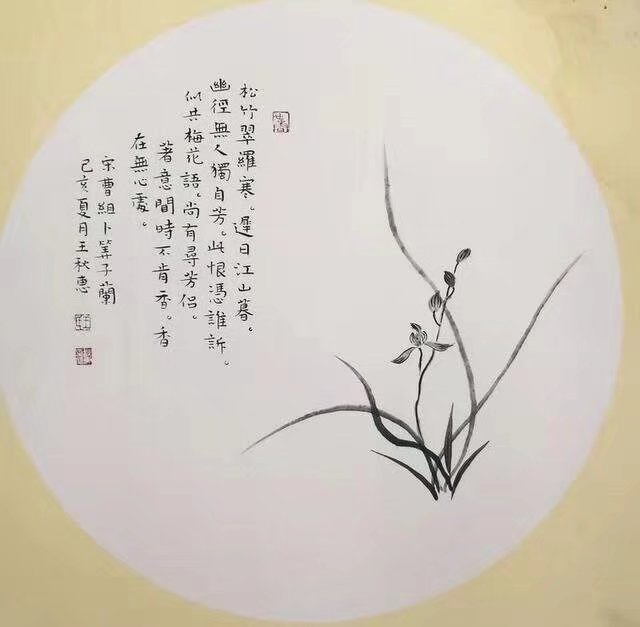 松竹翠羅寒。遲日江山暮。
幽徑無人獨自芳。此恨憑誰訴。
似共梅花語。尚有尋芳侶。
著意聞時不肯香。香
在無心處。
宋曹組卜算子蘭
己亥夏月王秋惠